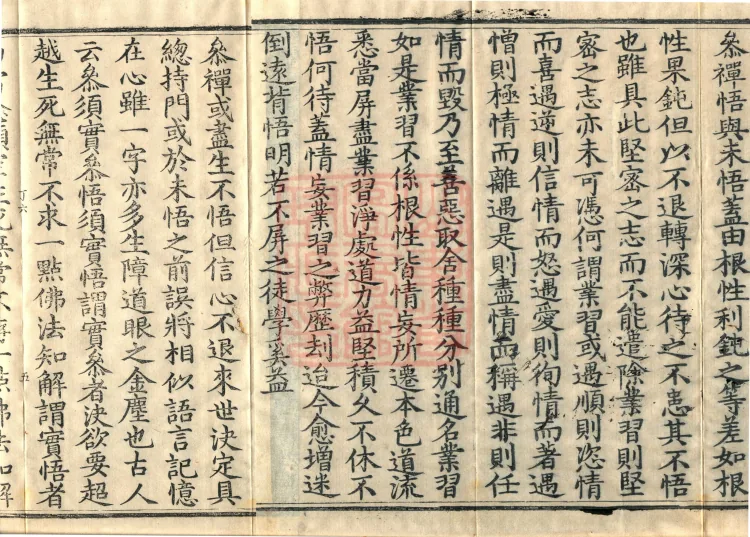 叅禪悟與未悟蓋由根性利鈍之等差如根
性果鈍但以不退轉深心待之不患其不悟
也雖具此堅宻之志而不能遣除業習則堅
宻之志亦未可憑何謂業習或遇順則恣情
而喜遇逆則信情而怒遇愛則徇情而著遇
憎則極情而離遇是則盡情而稱遇非則任
情而毀乃至善惡取舍種種分别通名業習
如是業習不係根性皆情妄所遷本色道流
悉當屏盡業習淨處道力益堅積久不休不
悟何待蓋情妄業習之弊歷刦迨今愈增迷
倒遠背悟明若不屏之徒學奚益
叅禪或盡生不悟但信心不退來世決定具
總持門或於未悟之前誤將相似語言記憶
在心雖一字亦多生障道眼之金塵也古人
云叅須實叅悟須實悟謂實叅者決欲要超
越生死無常不求一點佛法知解謂實悟者